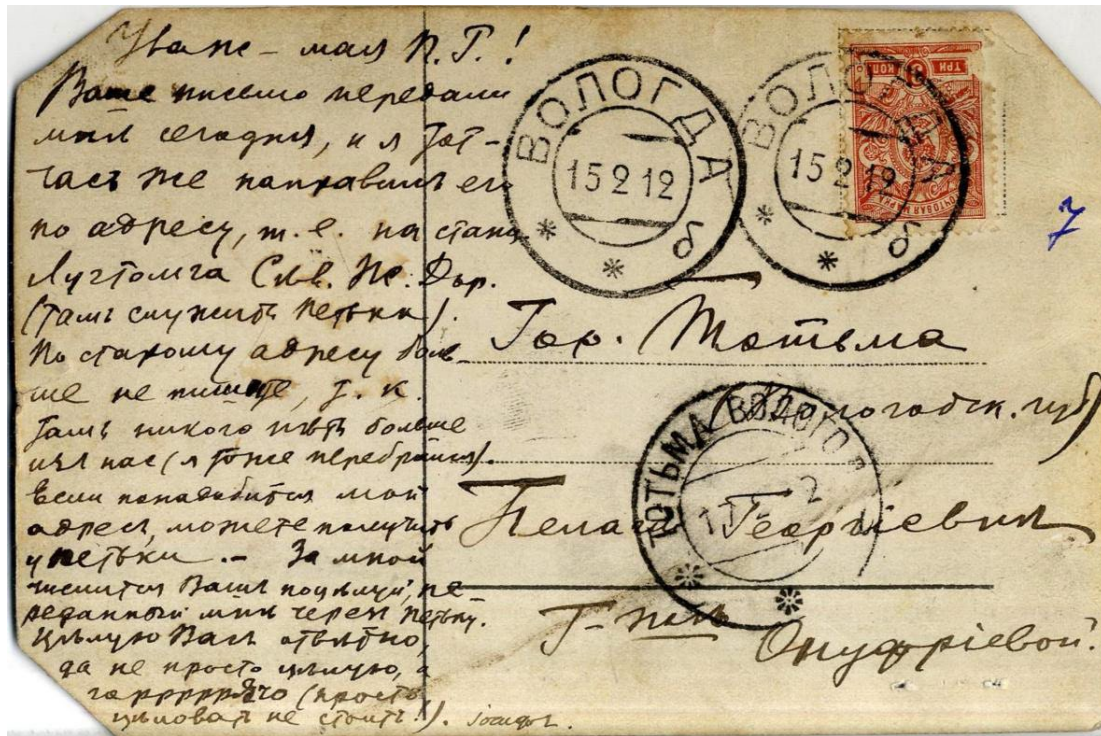 Уваж-мая П.Г.!
Ваше письмо передали
мнѣ сегодня, и я тот-
часъ же направилъ его
по адресу, т. е. на станц
Лухтонга Сѣв. Же. Дор.
(тамъ служитъ Петька).
По старому адресу боль-
ше не пишите, т. к.
тамъ никого нѣтъ больше
изъ нас (я тоже перебрался).
Если понадобится мой
адресъ, можете получить
у Петьки. – За мной
числится Вашъ поцѣлуй, пе-
реданный мнѣ через Петьку.
Цѣлую Васъ отвѣтно,
да не просто цѣлую, а
гаррррячо (просто
цѣловать не стоитъ!). Іосифъ.
ТРИ КОП
ПОЧТОВАЯ МАРКА
ВОЛОГДА
15 2 12
ВОЛОГДА
15 2 12
7
Гор. Тотьма
(Вологодск. губ)
ТОТЬМА ВОЛОГОД
Пелагее Георгіевнѣ
Г-жѣ
Онуфріевой.